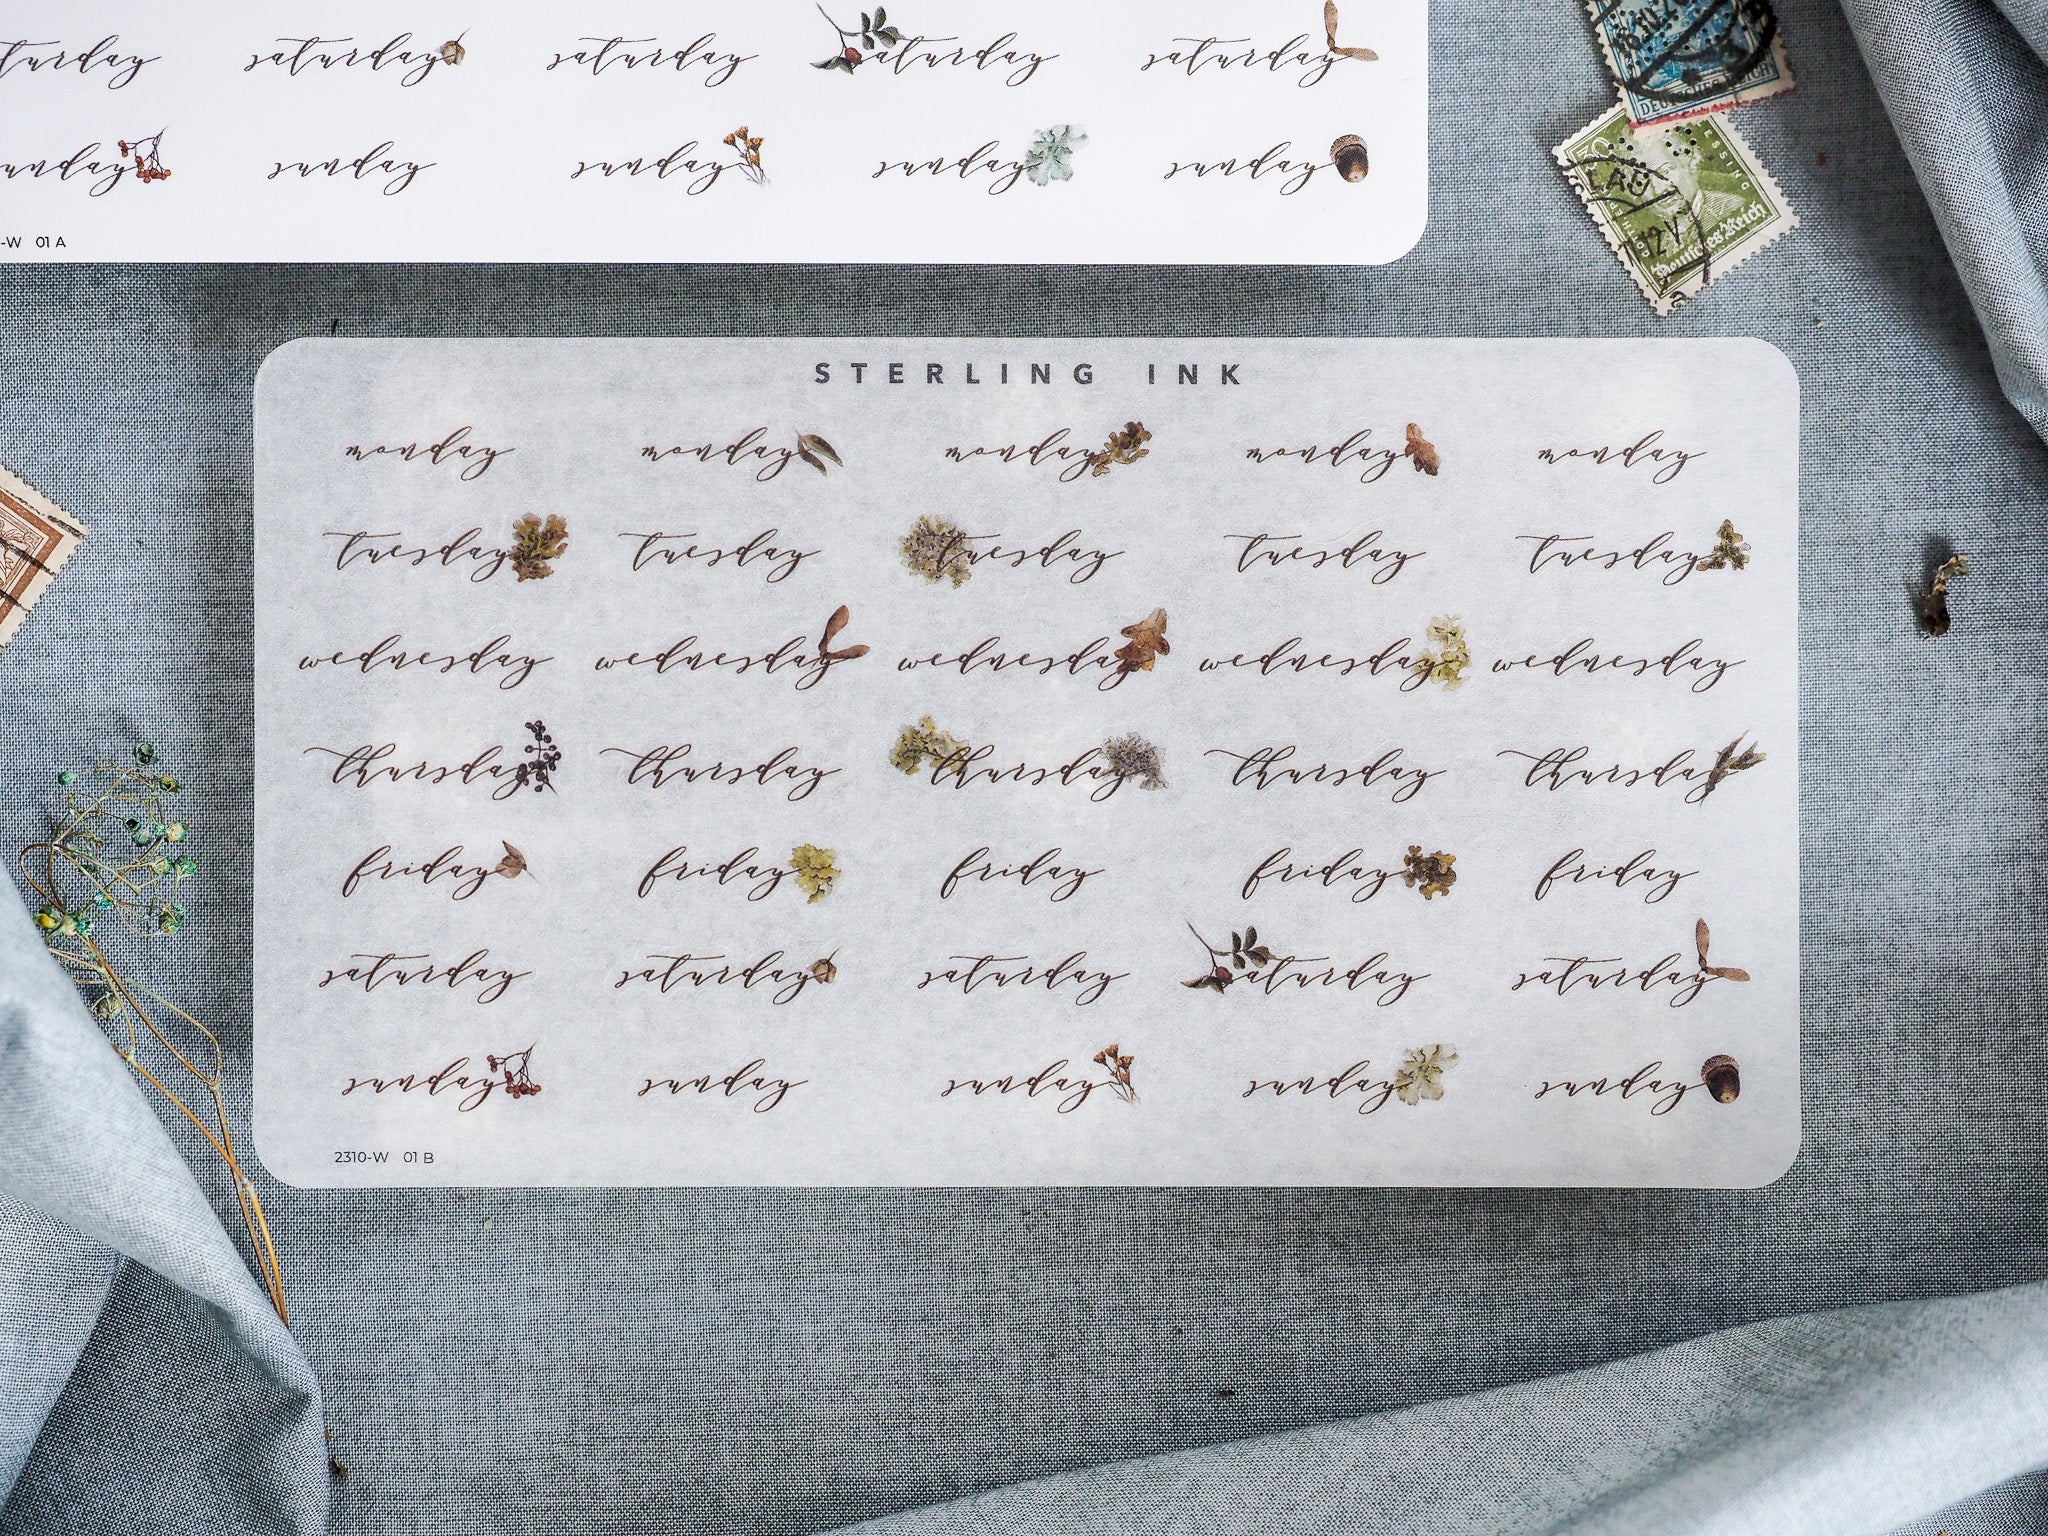 saturday saturday saturday saturday
sunday sunday sunday sunday
-W 01 A
DEUTSCHES REICH
LESSING
Deutsches Reich
STERLING INK
monday monday monday monday monday
tuesday tuesday tuesday tuesday tuesday
wednesday wednesday wednesday wednesday wednesday
thursday thursday thursday thursday thursday
friday friday friday friday friday
saturday saturday saturday saturday saturday
sunday sunday sunday sunday sunday
2310-W 01 B